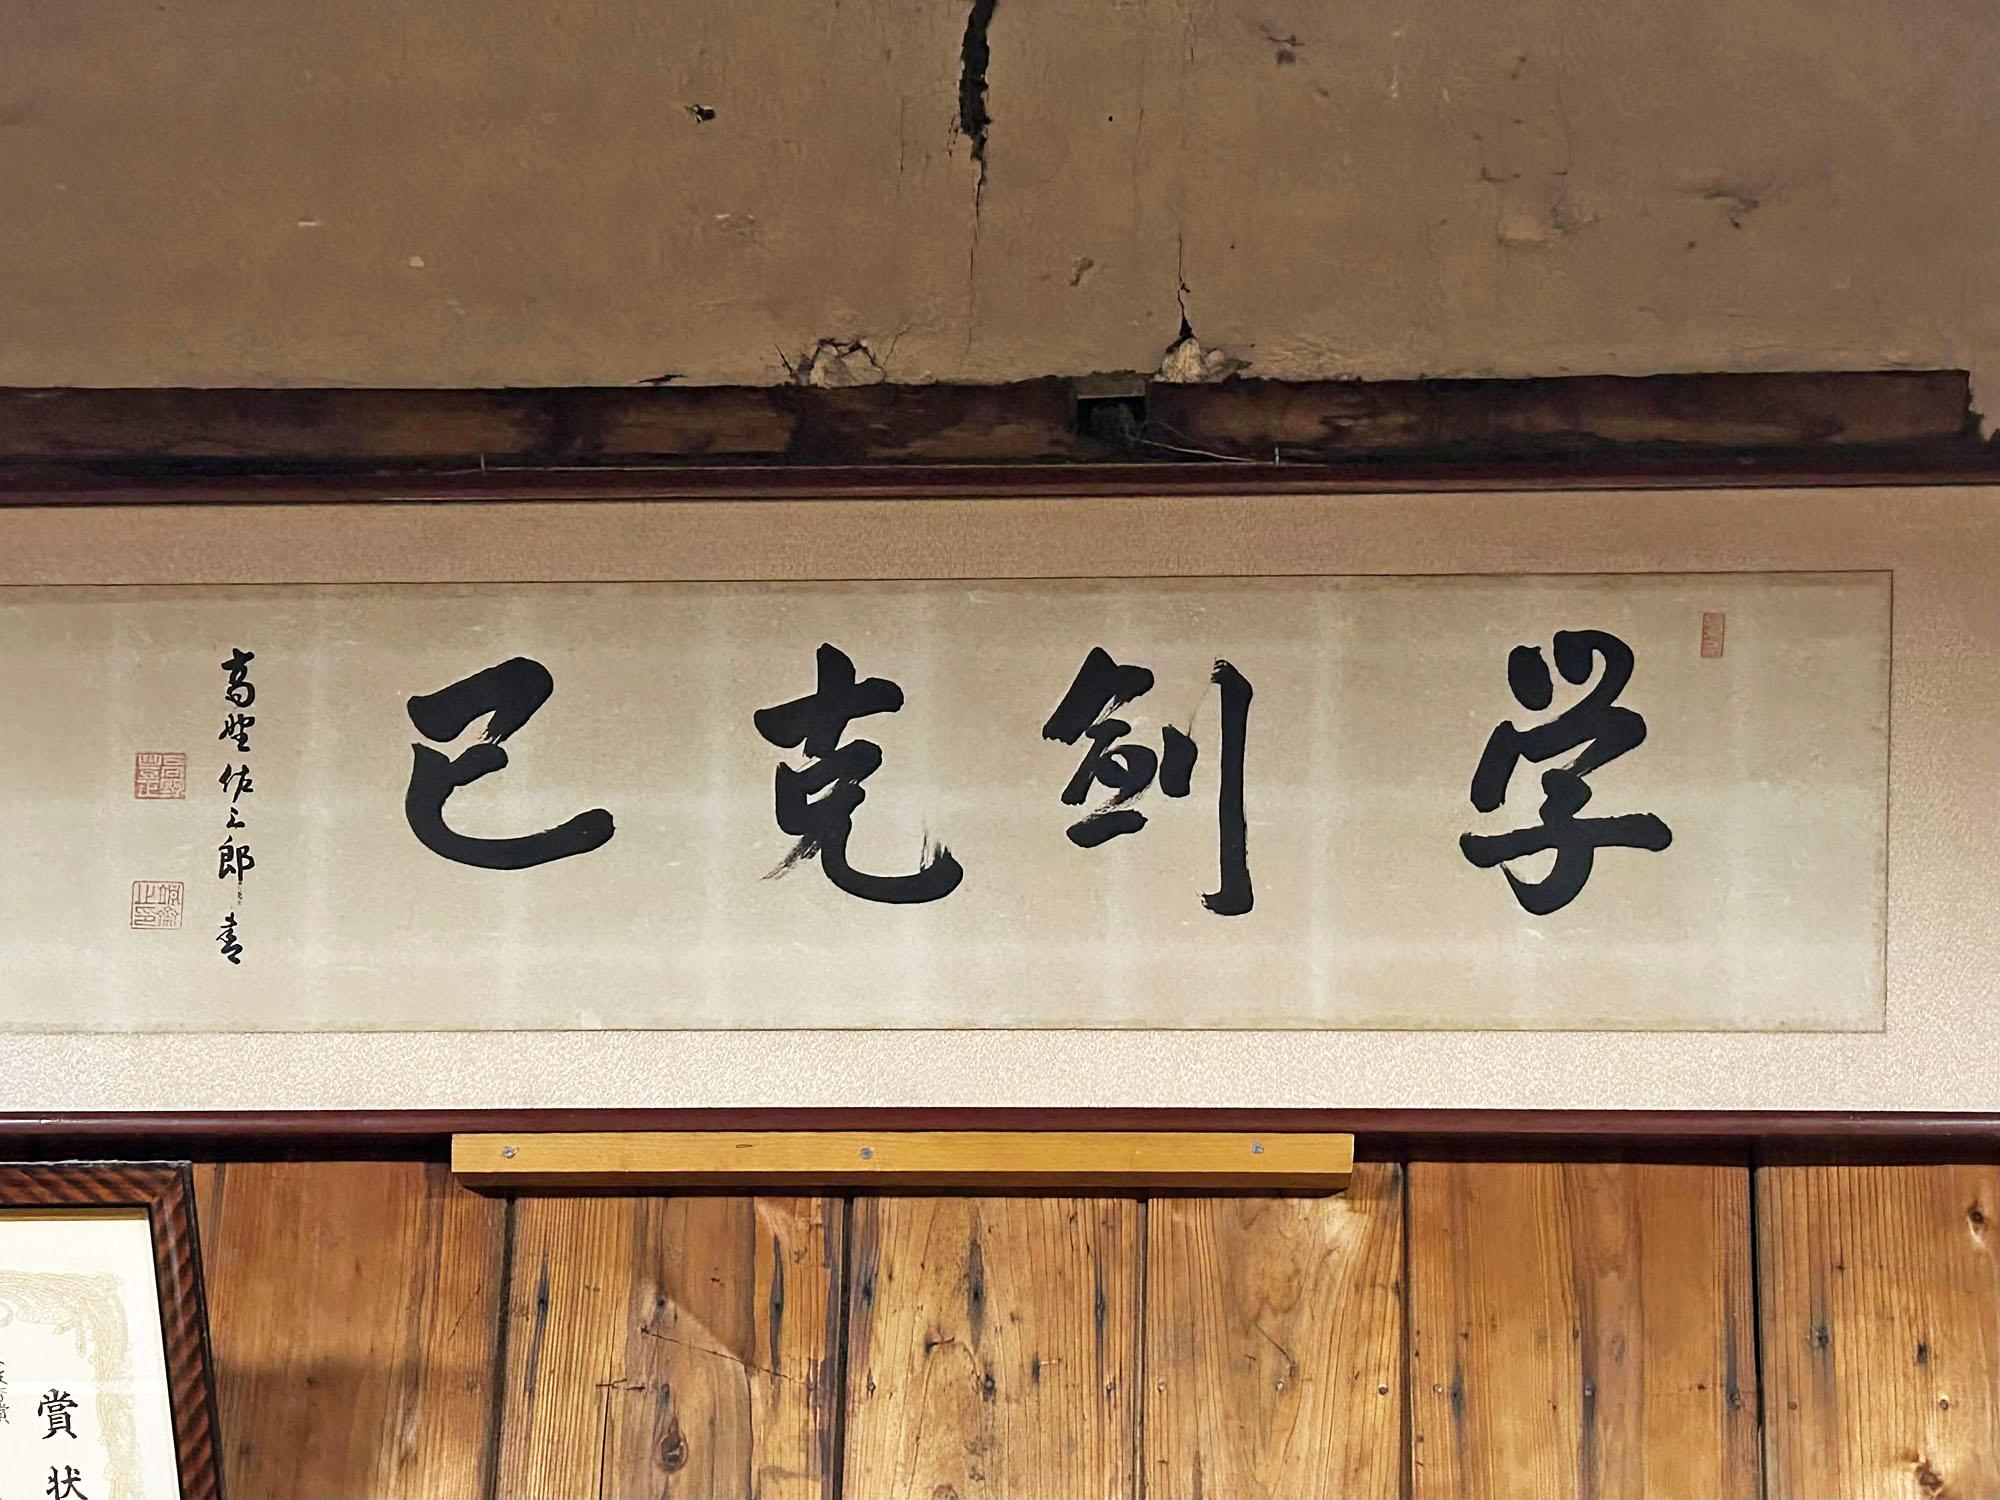 学剣克己
高野佐三郎書
賞状